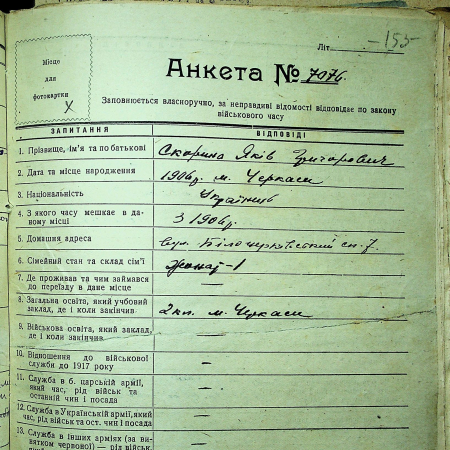 Літ. -153-
Місце
для
фотокартки
Анкета № 7076.
Заповнюється власноручно, за неправдиві відомості відповідає по закону
військового часу
ЗАПИТАННЯ ВІДПОВІДІ
1. Прізвище, ім'я та по батькові Скорина Яків Григорович
2. Дата та місце народження 1906р. м. Черкаси
3. Національність Українець
4. З якого часу мешкає в да-
ному місці З 1906р.
5. Домашня адреса вул. Білоцерківський сп. 7.
6. Сімейний стан та склад сім'ї Жонат-1
7. Де проживав та чим займався
до переїзду в дане місце —
8. Загальна освіта, який учбовий
заклад, де і коли закінчив 2 кл. м. Черкаси
9. Військова освіта, який заклад,
де і коли закінчив —
10. Відношення до військової
служби до 1917 року —
11. Служба в б. царській армії,
який час, рід військ та
останній чин і посада —
12. Служба в Українській армії, який
час, рід військ та ост. чин і посада —
13. Служба в інших арміях (за ви-
нятком червоної) — рід військ,